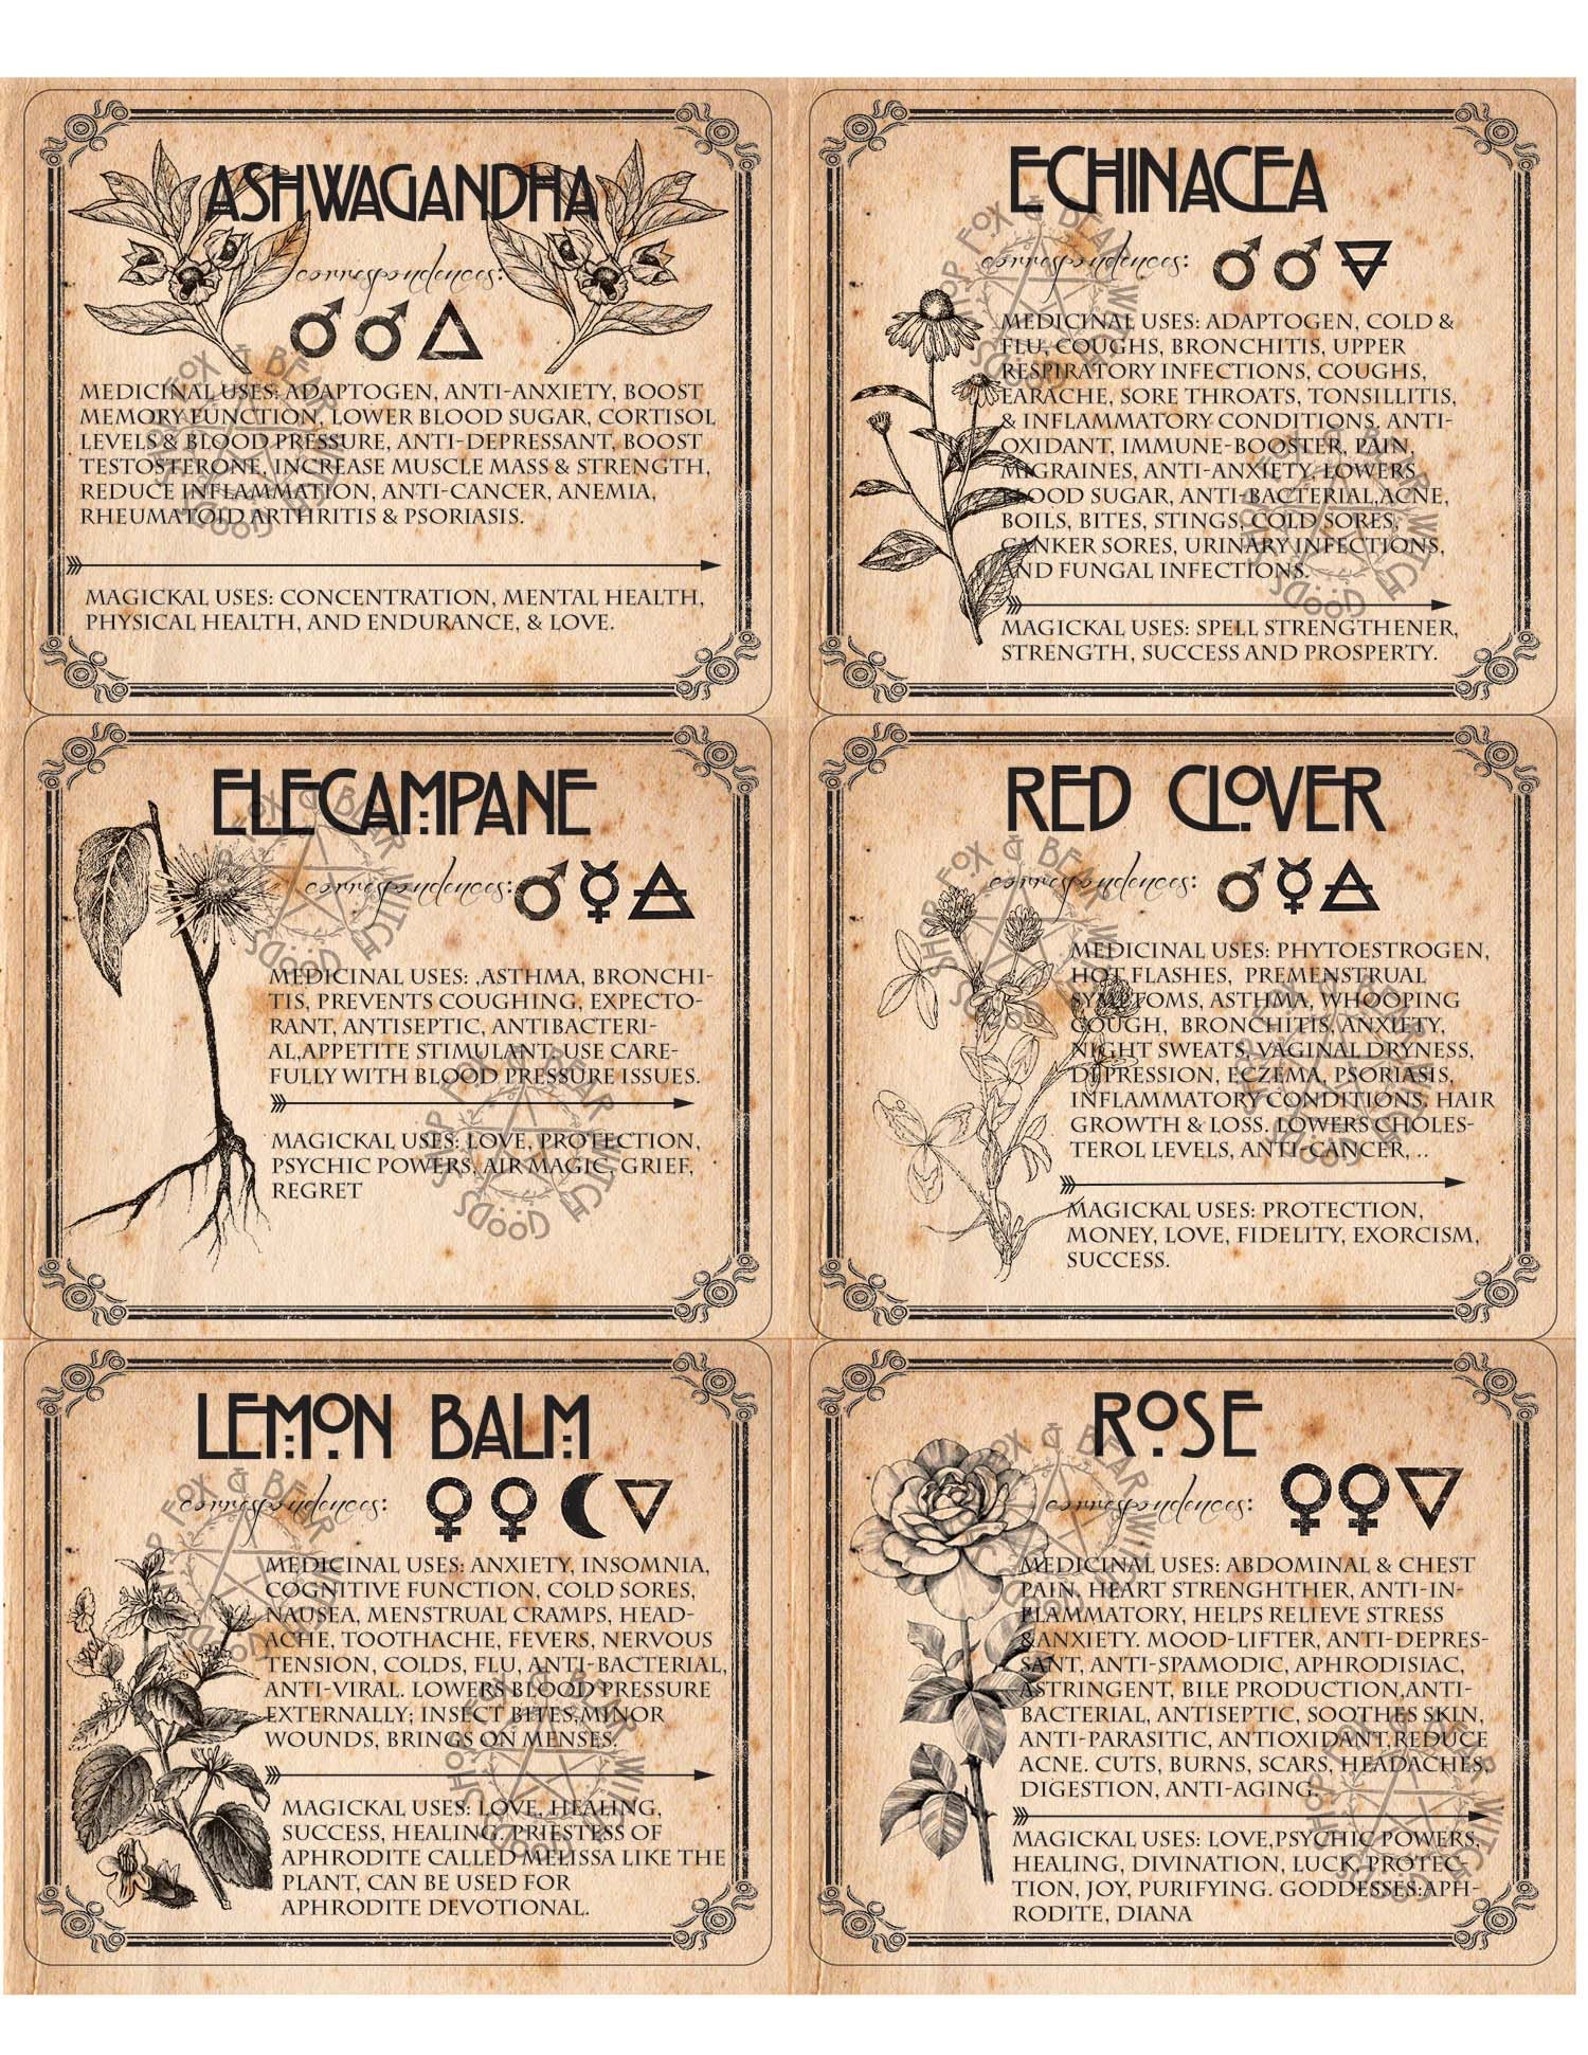 ASHWAGANDHA
correspondences:
MEDICINAL USES: ADAPTOGEN, ANTI-ANXIETY, BOOST
MEMORY FUNCTION, LOWER BLOOD SUGAR, CORTISOL
LEVELS & BLOOD PRESSURE, ANTI-DEPRESSANT, BOOST
TESTOSTERONE, INCREASE MUSCLE MASS & STRENGTH,
REDUCE INFLAMMATION, ANTI-CANCER, ANEMIA,
RHEUMATOID ARTHRITIS & PSORIASIS.
MAGICKAL USES: CONCENTRATION, MENTAL HEALTH,
PHYSICAL HEALTH, AND ENDURANCE, & LOVE.
SHOP FOX & BEAR WITCH GOODS
ECHINACEA
correspondences:
MEDICINAL USES: ADAPTOGEN, COLD &
FLU, COUGHS, BRONCHITIS, UPPER
RESPIRATORY INFECTIONS, COUGHS,
EARACHE, SORE THROATS, TONSILLITIS,
& INFLAMMATORY CONDITIONS, ANTI-
OXIDANT, IMMUNE-BOOSTER, PAIN,
MIGRAINES, ANTI-ANXIETY, LOWERS
BLOOD SUGAR, ANTI-BACTERIAL,ACNE,
BOILS, BITES, STINGS, COLD SORES,
CANKER SORES, URINARY INFECTIONS,
AND FUNGAL INFECTIONS.
MAGICKAL USES: SPELL STRENGTHENER,
STRENGTH, SUCCESS AND PROSPERTY.
SHOP FOX & BEAR WITCH GOODS
SHOP FOX & BEAR WITCH GOODS
ELECAMPANE
correspondences:
MEDICINAL USES: ,ASTHMA, BRONCHI-
TIS, PREVENTS COUGHING, EXPECTO-
RANT, ANTISEPTIC, ANTIBACTERI-
AL,APPETITE STIMULANT, USE CARE-
FULLY WITH BLOOD PRESSURE ISSUES.
MAGICKAL USES: LOVE, PROTECTION,
PSYCHIC POWERS, AIR MAGIC, GRIEF,
REGRET
SHOP FOX & BEAR WITCH GOODS
SHOP FOX & BEAR WITCH GOODS
RED CLOVER
correspondences:
MEDICINAL USES: PHYTOESTROGEN,
HOT FLASHES, PREMENSTRUAL
SYMPTOMS, ASTHMA, WHOOPING
COUGH, BRONCHITIS, ANXIETY,
NIGHT SWEATS, VAGINAL DRYNESS,
DEPRESSION, ECZEMA, PSORIASIS,
INFLAMMATORY CONDITIONS, HAIR
GROWTH & LOSS. LOWERS CHOLES-
TEROL LEVELS, ANTI-CANCER, ..
MAGICKAL USES: PROTECTION,
MONEY, LOVE, FIDELITY, EXORCISM,
SUCCESS.
SHOP FOX & BEAR WITCH GOODS
SHOP FOX & BEAR WITCH GOODS
LEMON BALM
correspondences:
MEDICINAL USES: ANXIETY, INSOMNIA,
COGNITIVE FUNCTION, COLD SORES,
NAUSEA, MENSTRUAL CRAMPS, HEAD-
ACHE, TOOTHACHE, FEVERS, NERVOUS
TENSION, COLDS, FLU, ANTI-BACTERIAL,
ANTI-VIRAL. LOWERS BLOOD PRESSURE
EXTERNALLY; INSECT BITES,MINOR
WOUNDS, BRINGS ON MENSES.
MAGICKAL USES: LOVE, HEALING,
SUCCESS, HEALING. PRIESTESS OF
APHRODITE CALLED MELISSA LIKE THE
PLANT, CAN BE USED FOR
APHRODITE DEVOTIONAL.
SHOP FOX & BEAR WITCH GOODS
SHOP FOX & BEAR WITCH GOODS
ROSE
correspondences:
MEDICINAL USES: ABDOMINAL & CHEST
PAIN, HEART STRENGHTHER, ANTI-IN-
FLAMMATORY, HELPS RELIEVE STRESS
&ANXIETY. MOOD-LIFTER, ANTI-DEPRES-
SANT, ANTI-SPAMODIC, APHRODISIAC,
ASTRINGENT, BILE PRODUCTION,ANTI-
BACTERIAL, ANTISEPTIC, SOOTHES SKIN,
ANTI-PARASITIC, ANTIOXIDANT,REDUCE
ACNE. CUTS, BURNS, SCARS, HEADACHES,
DIGESTION, ANTI-AGING,
MAGICKAL USES: LOVE,PSYCHIC POWERS,
HEALING, DIVINATION, LUCK, PROTEC-
TION, JOY, PURIFYING. GODDESSES:APH-
RODITE, DIANA
SHOP FOX & BEAR WITCH GOODS
SHOP FOX & BEAR WITCH GOODS